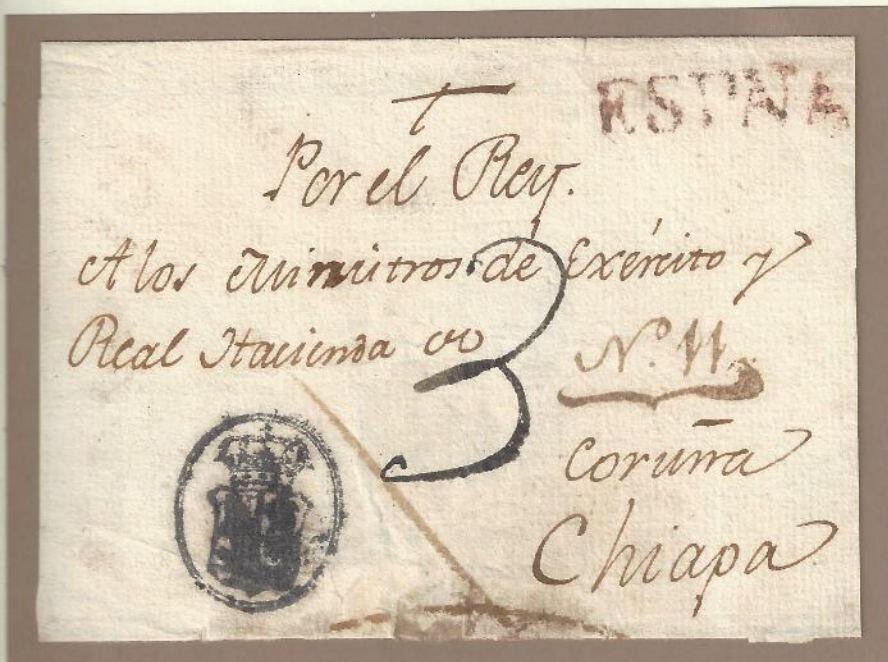 ESPNA
Por el Rey.
A los Ministros de Exército y
Real Hacienda de
3
Nº. 11.
Coruña
Chiapa